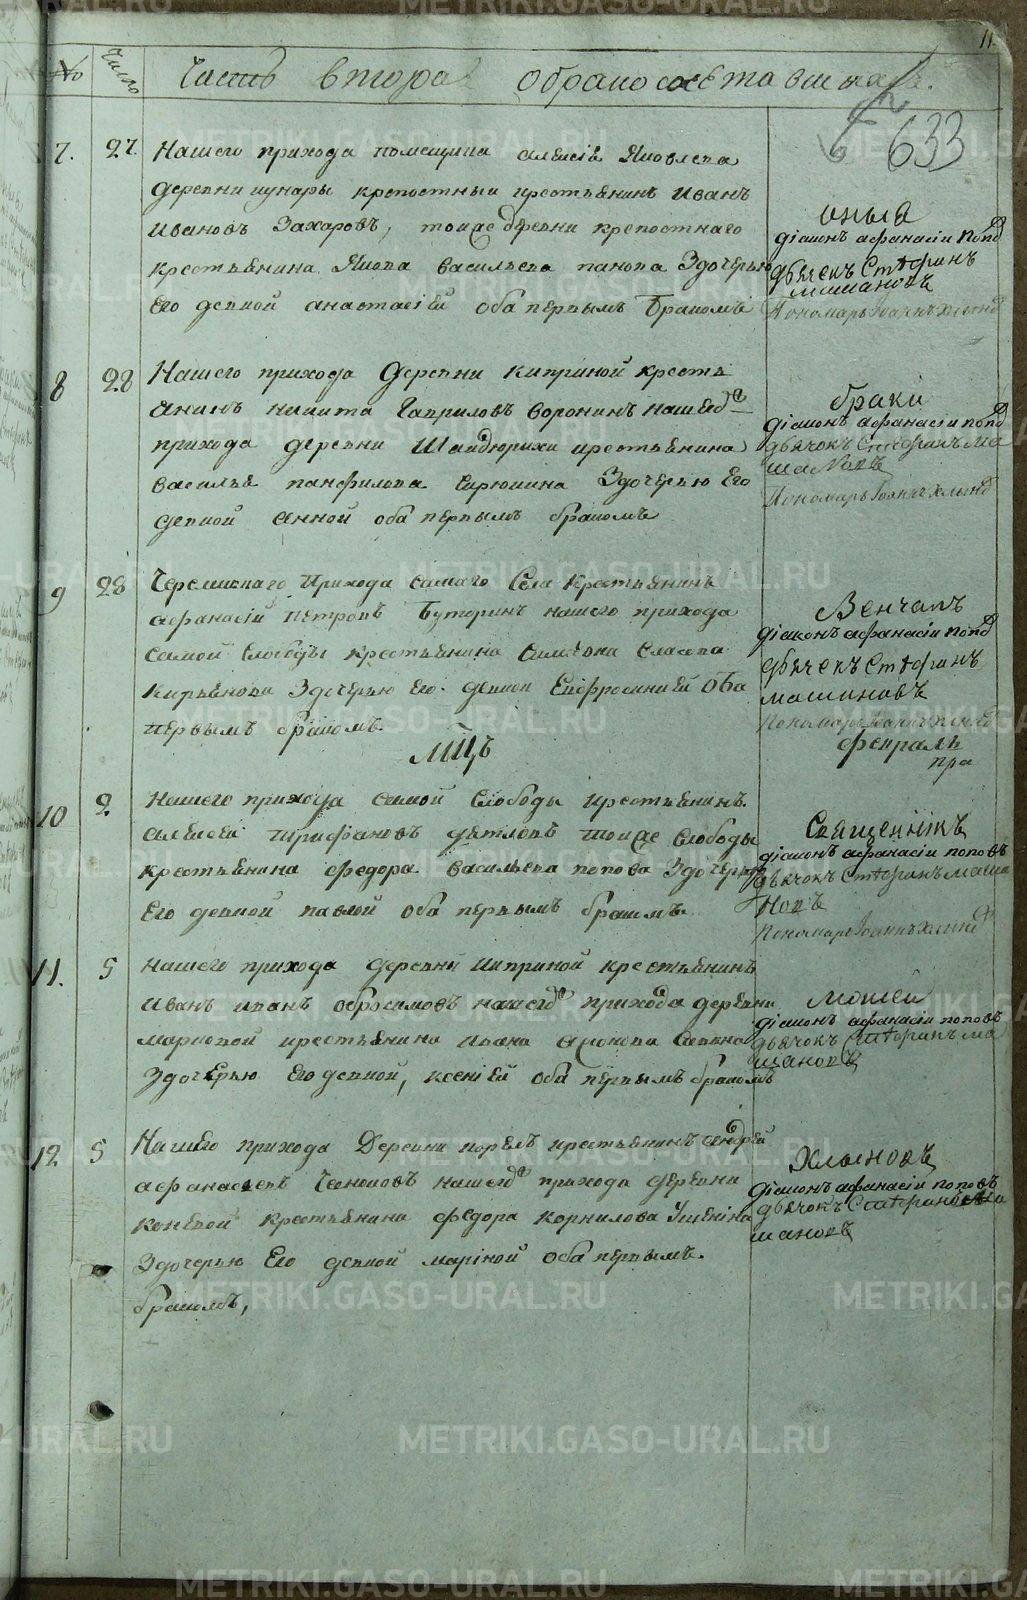 11
№ Число Часть вторая о бракосочетавшихся.
633
7. 27. Нашего прихода помещика алеѯѣя Яковлева
деревни шунары крепостный крестьянинъ Иванъ
Ивановъ Захаровъ, тоиже дѣревни крепостнаго
крестьянина Якова Васильева панова Здочерью
Его девкой анастасіей оба первымъ бракомъ
оныя
діаконъ афанасіи Поповъ
дьячекъ Стефанъ
машановъ
Пономарь Іоаннъ Хлынов
8 28 Нашего прихода Деревни Киприной кресть
янинъ никита Гавриловъ воронинъ нашего
прихода деревни Шайдюрихи крестьянина
Василья панфилова Сирюшина Здочерью Его
девкой анной оба первымъ бракомъ
браки
діаконъ афанасіи поповъ
дьячокъ Стефанъ ма
шановъ
Пономарь Іоаннъ Хлынов
9 28 Черемискаго Прихода самаго Села Крестьянинъ
афанасіи Петровъ Буторинъ нашего прихода
самой Слободы крестьянина Симеона Сласева
Кирьянова Здочерью Его девкой Евфросинией Оба
первымъ бракомъ
Венчавъ
діаконъ афанасіи поповъ
дьячекъ Стефанъ
машановъ
Пономарь Іоаннъ Хлынов
Мцъ
февраль
10 2 Нашего прихода самой Слободы крестьянинъ
алеѯѣй Трифановъ детловъ тоиже Слободы
крестьянина федора Васильева попова Здочерью
Его девкой павлой оба первымъ бракомъ
Священникъ
діаконъ афанасіи поповъ
дьячокъ Стефанъ маша
новъ
Пономарь Іоаннъ Хлынов
11. 5 Нашего прихода деревни Киприной крестьянинъ
Иванъ Иванъ обросимовъ нашего прихода деревни
марковой крестьянина Ивана
Здочерью Его девкой, ксенией оба первымъ бракомъ
Мокей
діаконъ афанасіи поповъ
дьячокъ Стефанъ ма
шановъ
12 5 Нашего прихода Деревни крестьянинъ андрей
афанасьевъ Чесноковъ нашего прихода деревни
Коневой Крестьянина федора Корнилова
Здочерью Его девкой мариной оба первымъ
бракомъ,
Хлыновъ
діаконъ афанасіи поповъ
дьячокъ Стефанъ ма
шановъ
METRIKI.GASO-URAL.RU